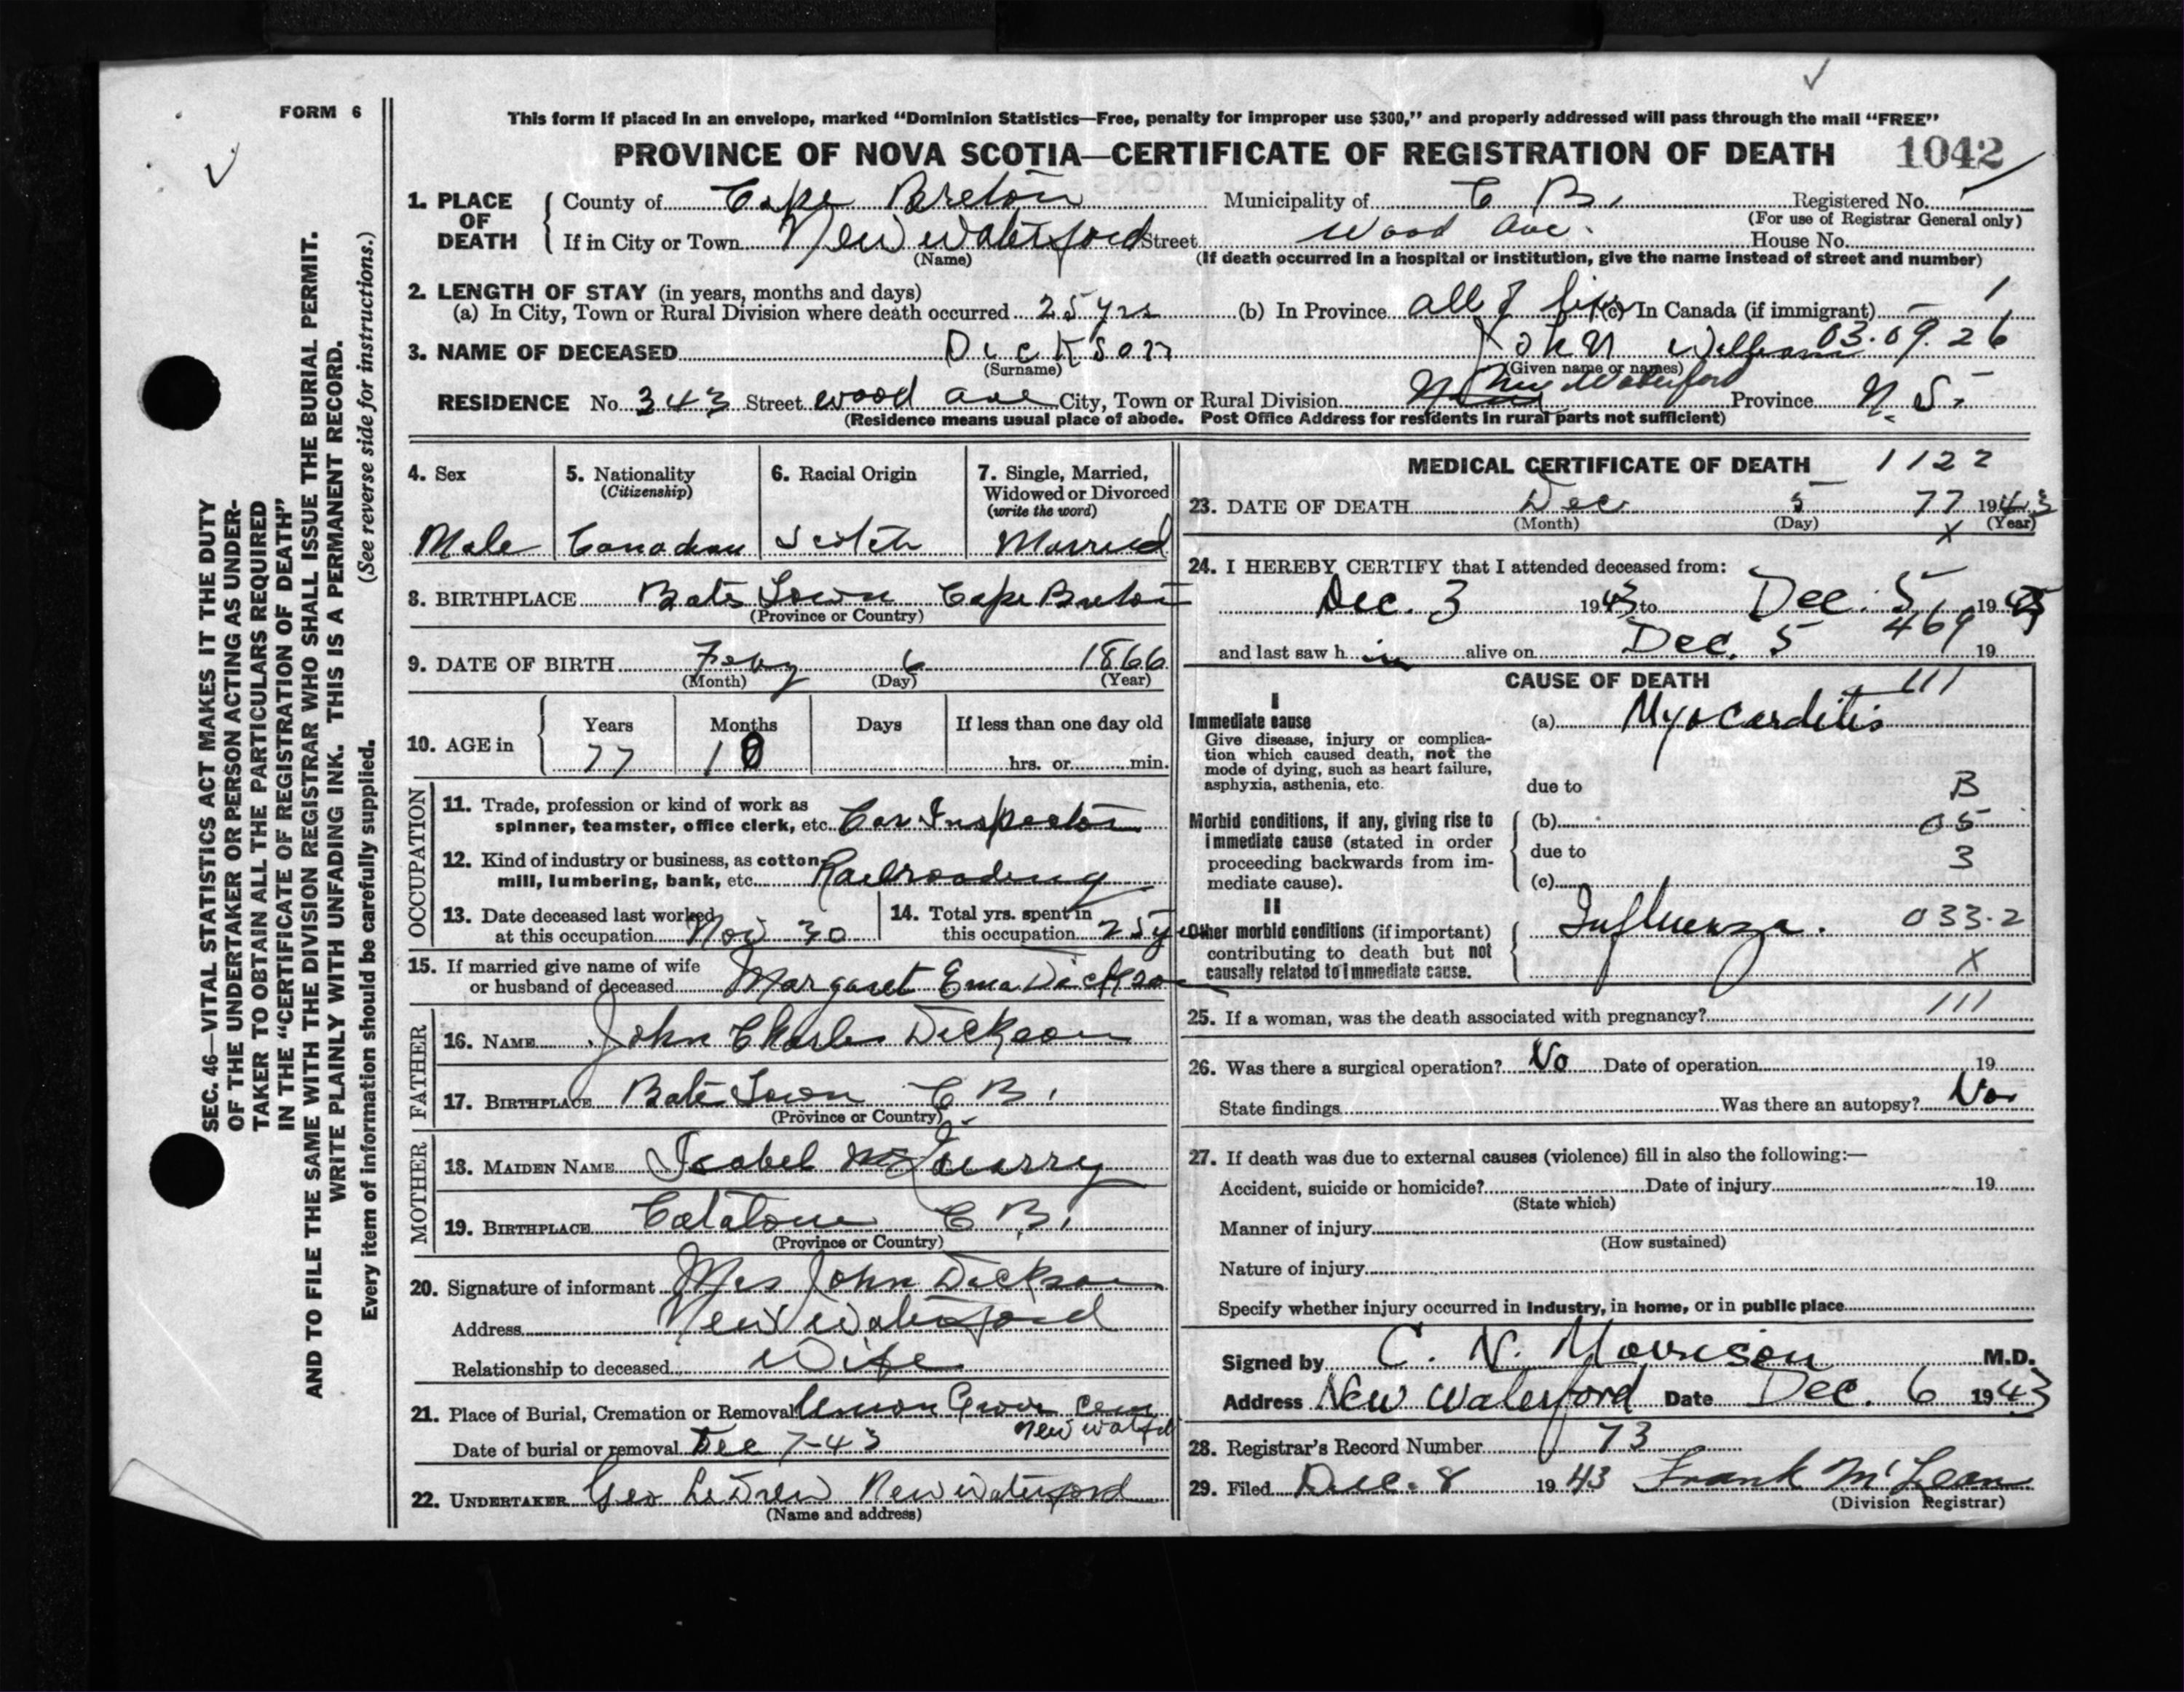 FORM 6
This form if placed in an envelope, marked “Dominion Statistics—Free, penalty for improper use $300,” and properly addressed will pass through the mail “FREE”
PROVINCE OF NOVA SCOTIA—CERTIFICATE OF REGISTRATION OF DEATH 1042
1. PLACE OF DEATH
County of Cape Breton Municipality of C B. Registered No.
(For use of Registrar General only)
If in City or Town New Waterford Street Wood Ave. House No.
(Name) (If death occurred in a hospital or institution, give the name instead of street and number)
2. LENGTH OF STAY (in years, months and days)
(a) In City, Town or Rural Division where death occurred 25 yrs (b) In Province all of life (c) In Canada (if immigrant) — 1
03.09.26
3. NAME OF DECEASED Dickson John William
(Surname) (Given name or names)
RESIDENCE No. 343 Street wood ave City, Town or Rural Division New Waterford Province N. S.
(Residence means usual place of abode. Post Office Address for residents in rural parts not sufficient)
4. Sex Male
5. Nationality (Citizenship) Canadian
6. Racial Origin Scotch
7. Single, Married, Widowed or Divorced (write the word) Married
8. BIRTHPLACE Bates Town Cape Breton
(Province or Country)
9. DATE OF BIRTH Feby 6 1866
(Month) (Day) (Year)
10. AGE in Years Months Days If less than one day old
77 10 hrs. or min.
OCCUPATION
11. Trade, profession or kind of work as spinner, teamster, office clerk, etc. Car Inspector
12. Kind of industry or business, as cotton mill, lumbering, bank, etc. Railroading
13. Date deceased last worked at this occupation Nov 30
14. Total yrs. spent in this occupation 25 y
15. If married give name of wife or husband of deceased Margaret Ema Dickson
FATHER
16. NAME John Charles Dickson
17. BIRTHPLACE Bates Town C B.
(Province or Country)
MOTHER
18. MAIDEN NAME Isabel McQuarry
19. BIRTHPLACE Catalone C B.
(Province or Country)
20. Signature of informant Mrs John Dickson
Address New Waterford
Relationship to deceased Wife
21. Place of Burial, Cremation or Removal Grove Cem
New Watfd
Date of burial or removal Dec 7-43
22. UNDERTAKER Geo LeDrew New Waterford
(Name and address)
MEDICAL CERTIFICATE OF DEATH 1122
23. DATE OF DEATH Dec 5 77 1943
(Month) (Day) x (Year)
24. I HEREBY CERTIFY that I attended deceased from:
Dec. 3 1943 to Dec. 5 1943
469
and last saw h im alive on Dec. 5 19
CAUSE OF DEATH
111
I
Immediate cause
Give disease, injury or complication which caused death, not the mode of dying, such as heart failure, asphyxia, asthenia, etc.
(a) Myocarditis
due to B
Morbid conditions, if any, giving rise to immediate cause (stated in order proceeding backwards from immediate cause).
(b) 05
due to 3
(c)
II
Other morbid conditions (if important) contributing to death but not causally related to immediate cause.
Influenza. 033.2
X
111
25. If a woman, was the death associated with pregnancy?
26. Was there a surgical operation? No Date of operation 19
State findings Was there an autopsy? No
27. If death was due to external causes (violence) fill in also the following:—
Accident, suicide or homicide? Date of injury 19
(State which)
Manner of injury
(How sustained)
Nature of injury
Specify whether injury occurred in industry, in home, or in public place
Signed by C. N. Morrison M.D.
Address New Waterford Date Dec. 6 1943
28. Registrar's Record Number 73
29. Filed Dec. 8 1943 Frank McLean
(Division Registrar)
SEC. 46—VITAL STATISTICS ACT MAKES IT THE DUTY
OF THE UNDERTAKER OR PERSON ACTING AS UNDER-
TAKER TO OBTAIN ALL THE PARTICULARS REQUIRED
IN THE “CERTIFICATE OF REGISTRATION OF DEATH”
AND TO FILE THE SAME WITH THE DIVISION REGISTRAR WHO SHALL ISSUE THE BURIAL PERMIT.
WRITE PLAINLY WITH UNFADING INK. THIS IS A PERMANENT RECORD.
Every item of information should be carefully supplied. (See reverse side for instructions.)